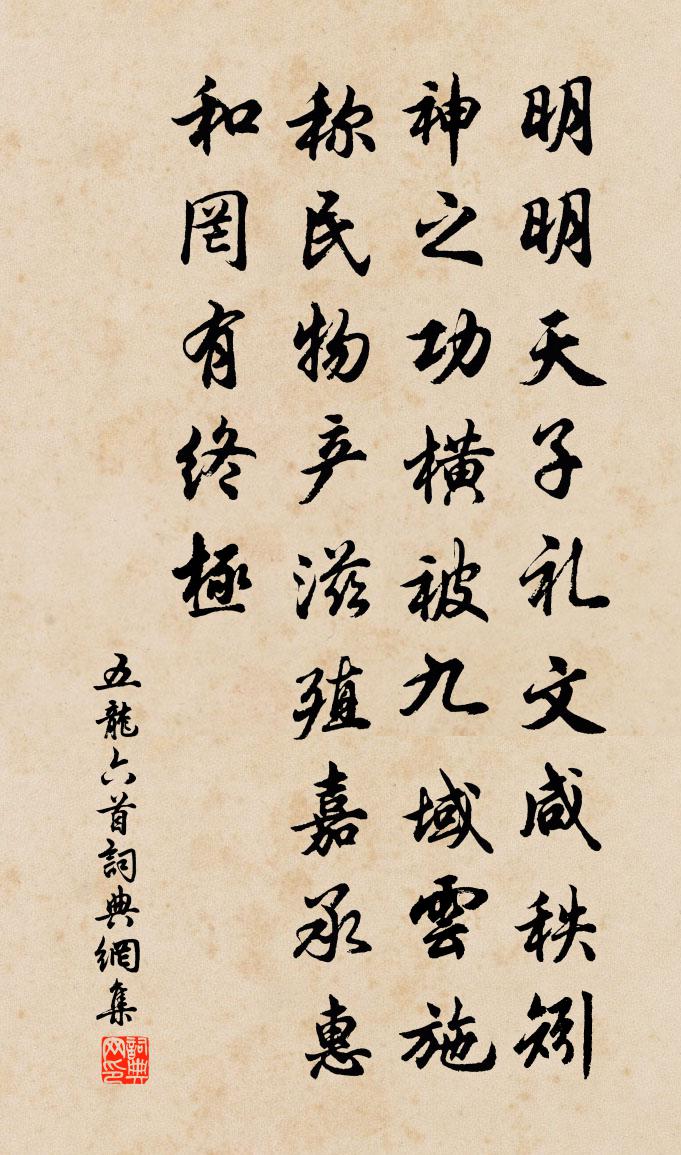 明明天子礼文咸秩矧
神之功横被九域雲施
称民物产滋殖嘉承惠
和罔有终極
五龍六首詞典網集
詞典网印